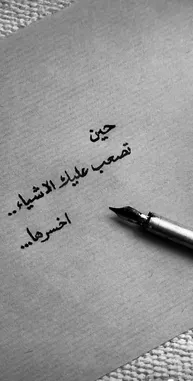 حين
تصعب عليك الاشياء..
اخسرها...